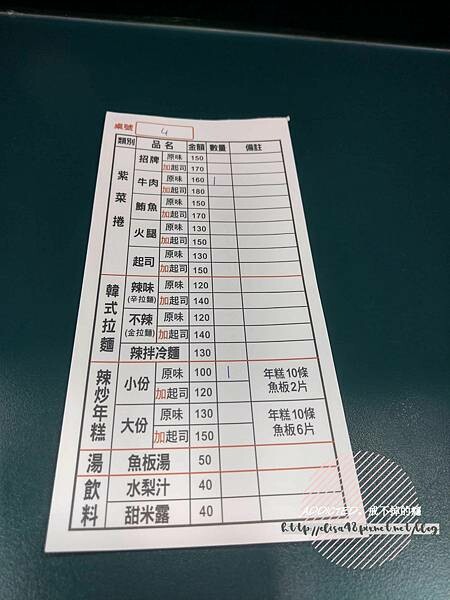 桌號 4
類別 品名 金額 數量 備註
紫菜捲 招牌 原味 150
加起司 170
牛肉 原味 160 |
加起司 180
鮪魚 原味 150
加起司 170
火腿 原味 130
加起司 150
起司 原味 130
加起司 150
韓式拉麵 辣味(辛拉麵) 原味 120
加起司 140
不辣(金拉麵) 原味 120
加起司 140
辣拌冷麵 130
辣炒年糕 小份 原味 100 | 年糕10條
加起司 120 魚板2片
大份 原味 130 年糕10條
加起司 150 魚板6片
湯 魚板湯 50
飲料 水梨汁 40
甜米露 40
ADDICTED。戒不掉的癮
http://elisa42.pixnet.net/blog